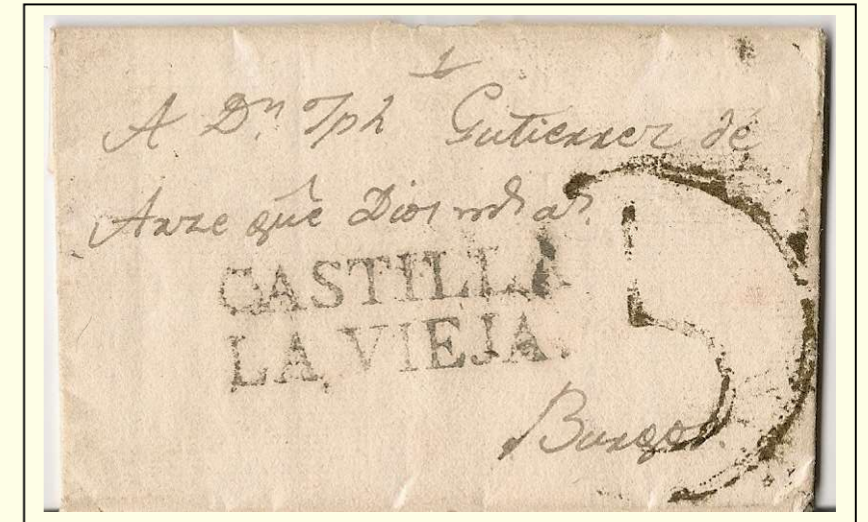 A Dn. Jph Gutierrez de
Arze que Dios ms as.
CASTILLA
LA VIEJA.
5
Burgos.